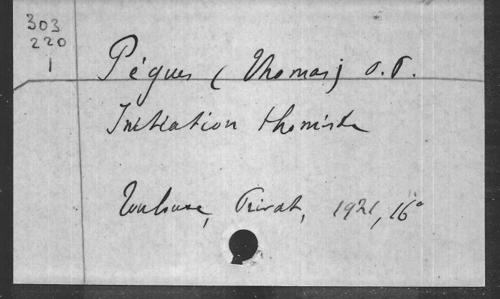 303
220
1
Pégues (Thomas) O.P.
Initiation thomiste
Toulouse, Privat, 1921, 16°